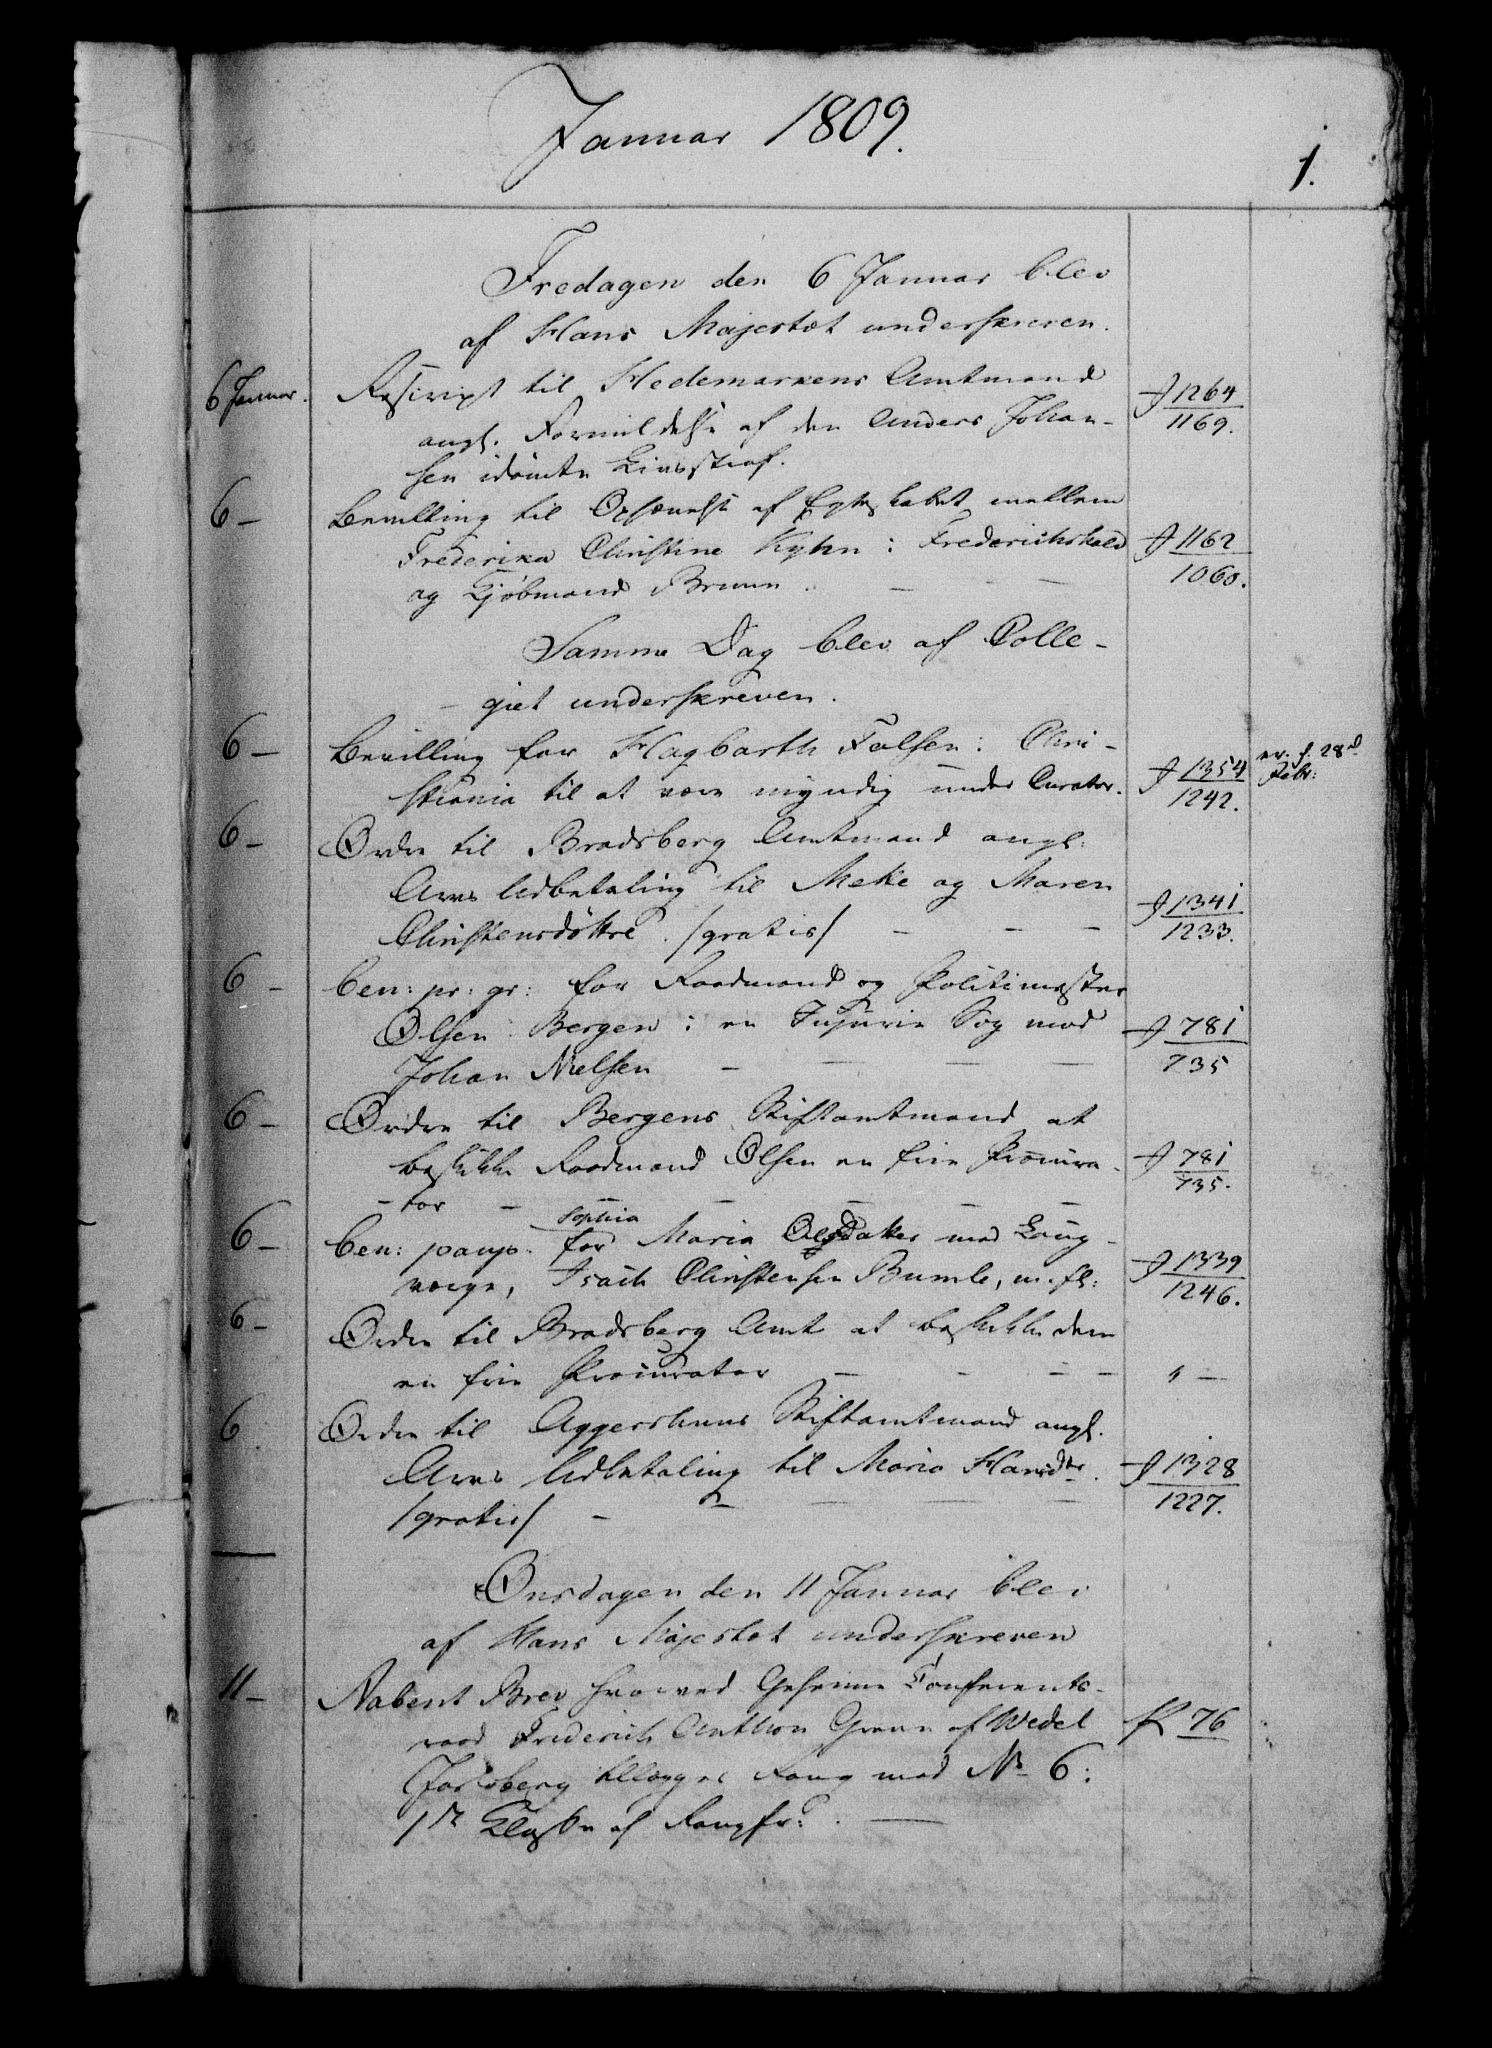 Januar 1809.
1.
Fredagen den 6 Januar blev
af Hans Majestæt underskreven.
6 Januar. Rescript til Hedemarkens Amtmand
angl. Formildelse af den Anders Johan-
sen idömte Livsstraf.
J 1264
1169.
6 - Bevilling til Ophævelse af Egteskabet mellem
Frederika Christine Kyhn i Frederichshald
og Kjöbmand Bruun. -
J 1162
1060.
Samme Dag blev af Colle-
giet underskreven.
6 - Bevilling for Hagbarth Falsen i Chri-
stiania til at være myndig under Curator.
J 1354
1242.
28d
Febr:
6 - Ordre til Bradsberg Amtmand angl:
Arvs Udbetaling til Mette og Maren
Christensdöttre. /gratis/ - - -
J 1341
1233.
6 - ben: pr: gr: for Raadmand og Politimester
Olsen i Bergen i en Injurie Sag mod
Johan Nielsen - - - -
J 781
735
6 - Ordre til Bergens Stiftamtmand at
beskikke Raadmand Olsen en frie Procura-
tor - - - - -
J 781
735.
6 - ben: paup: for Sophia Maria med Laug-
værge, Isach Christensen Bumle, m. fl:
J 1339
1246.
6 - Ordre til Bradsberg Amt at beskikke dem
en frie Procurator - - - -
6 Ordre til Aggershuus Stiftamtmand angl.
Arvs Udbetaling til Maria Hansdtr.
/gratis/ - - - - -
J 1328
1227.
Onsdagen den 11 Januar blev
af Hans Majestæt underskreven
11 - Aabent Brev hvorved Geheime Conferents-
raad Friderich Anthon Greve af Wedel
Jarlsberg tillægges Rang med No 6 i
1ste Klasse af Rangfr: . -
76